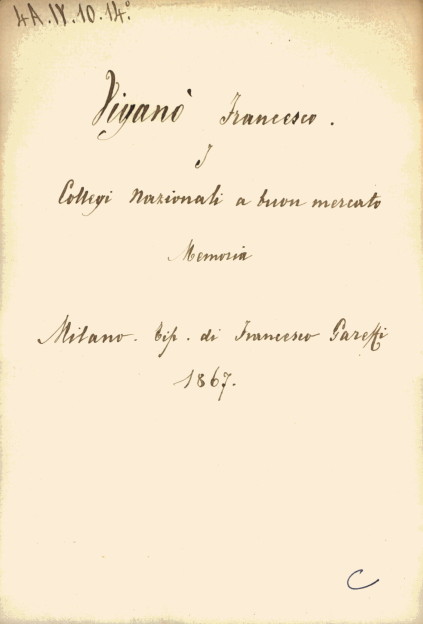 4A.IV.10.14°
Viganò Francesco.
I
Collegi Nazionali a buon mercato
Memoria
Milano. Tip. di Francesco Gareffi
1867.
C